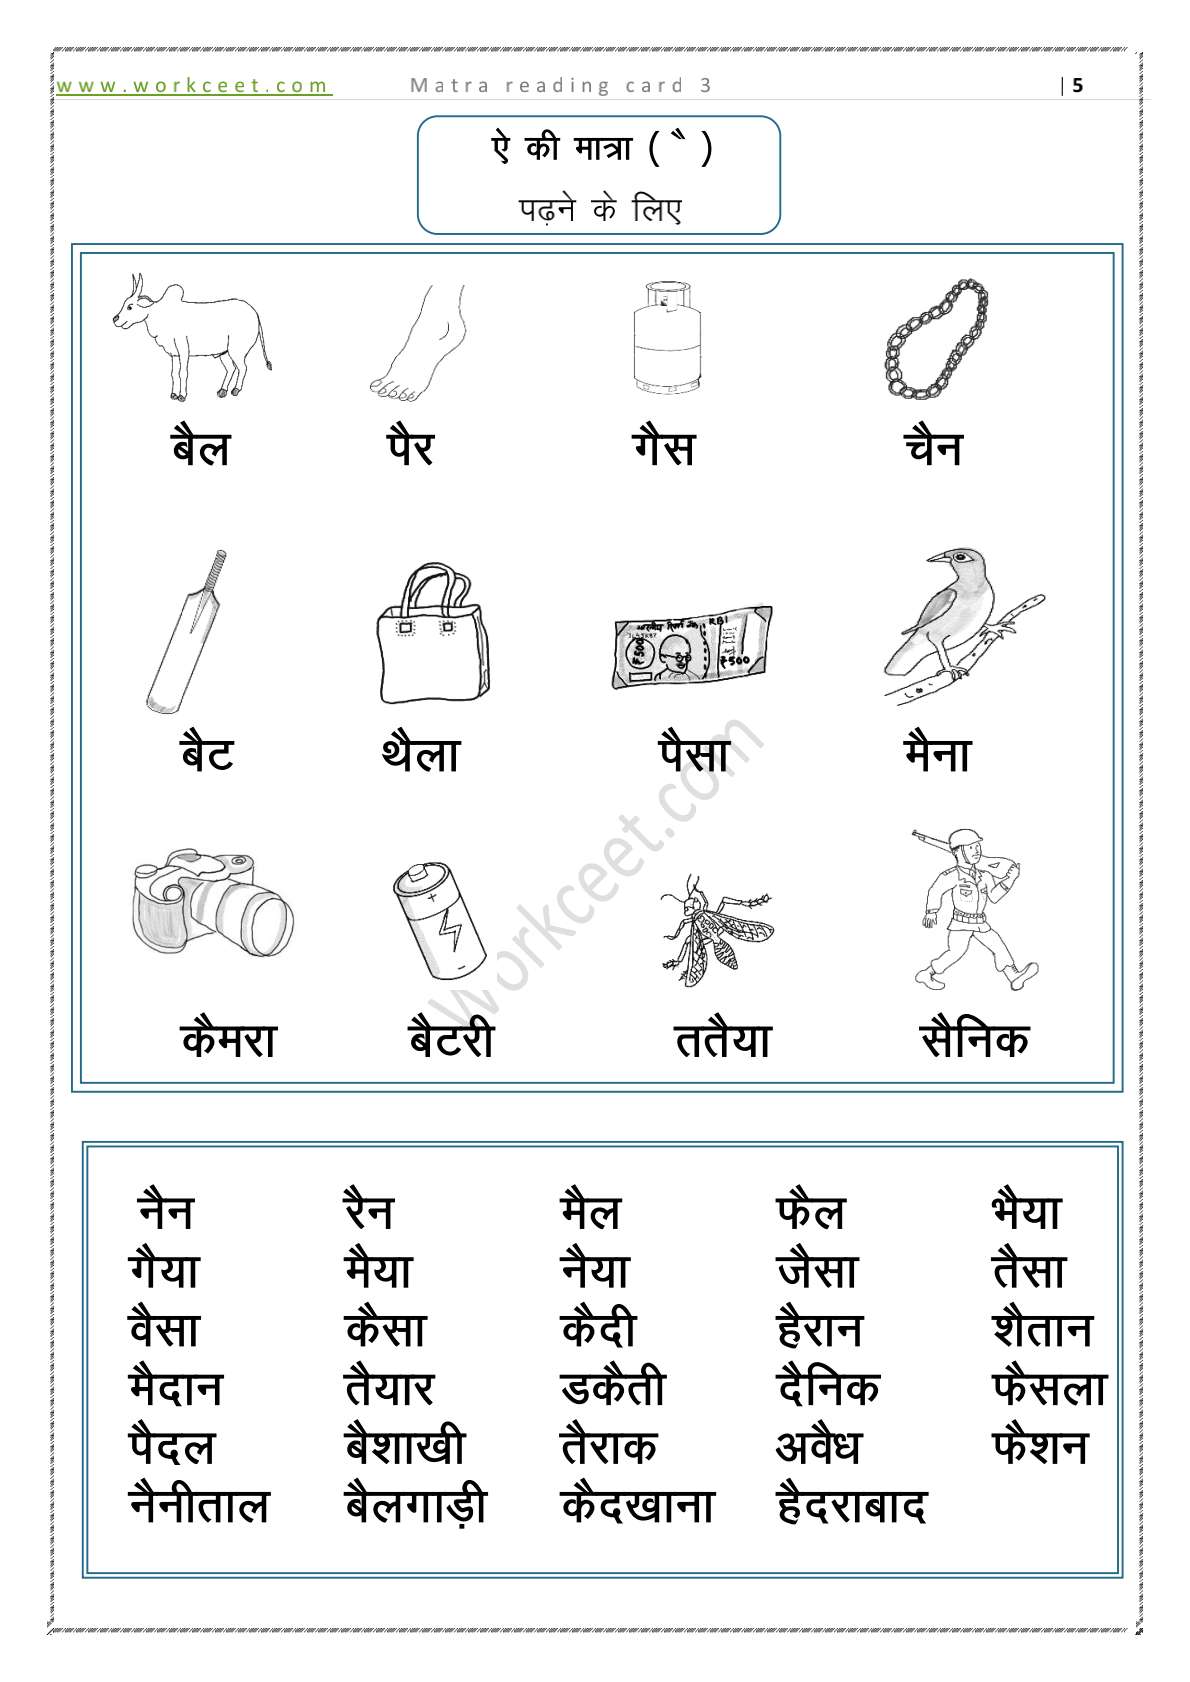 www.workceet.com Matra reading card 3 | 5
ऐ की मात्रा ( ै )
पढ़ने के लिए
बैल पैर गैस चैन
RBI
₹500 ₹500
बैट थैला पैसा मैना
कैमरा बैटरी ततैया सैनिक
workceet.com
नैन रैन मैल फैल भैया
गैया मैया नैया जैसा तैसा
वैसा कैसा कैदी हैरान शैतान
मैदान तैयार डकैती दैनिक फैसला
पैदल बैशाखी तैराक अवैध फैशन
नैनीताल बैलगाड़ी कैदखाना हैदराबाद